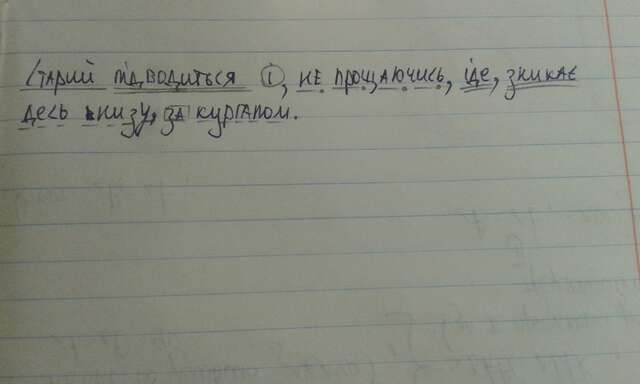 Старий підводиться і, не прощаючись, іде, зникає
десь книзу, за курганом.